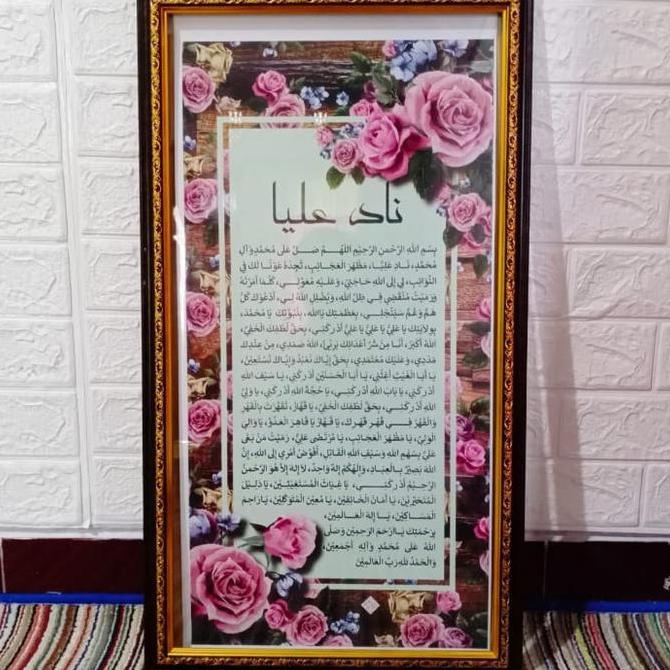 ناد عليا
بِسْمِ اللهِ الرَّحْمنِ الرَّحِيْمِ اَللّهُمَّ صَلِّ عَلى مُحَمَّدٍ وَآلِ
مُحَمَّدٍ، نَادِ عَلِيًّا، مَظْهَرَ الْعَجَائِبِ، تَجِدْهُ عَوْنًا لَكَ فِي
النَّوَائِبِ، لِي إِلَى اللهِ حَاجَتِيْ، وَعَلَيْهِ مُعَوَّلِي، كُلَّمَا أَمَرْتَهُ
وَرَمَيْتَ مُنْقَضِي فِي ظِلِّ اللهِ، وَيُضْلِلِ اللهُ لِي، أَدْعُوْكَ كُلَّ
هَمٍّ وَغَمٍّ سَيَنْجَلِي، بِعَظَمَتِكَ يَا اَللهُ، بِنُبُوَّتِكَ يَا مُحَمَّدُ،
بِوِلَايَتِكَ يَا عَلِيُّ يَا عَلِيُّ يَا عَلِيُّ أَدْرِكْنِي، بِحَقِّ لُطْفِكَ الْخَفِيِّ،
اَللهُ أَكْبَرُ، أَنَا مِنْ شَرِّ أَعْدَائِكَ بَرِيْءٌ، اَللهُ صَمَدِي، مِنْ عِنْدِكَ
مَدَدِي، وَعَلَيْكَ مُعْتَمَدِي، بِحَقِّ إِيَّاكَ نَعْبُدُ وَإِيَّاكَ نَسْتَعِيْنُ،
يَا أَبَا الْغَيْثِ أَغِثْنِي، يَا أَبَا الْحَسَنَيْنِ أَدْرِكْنِي، يَا سَيْفَ اللهِ
أَدْرِكْنِي، يَا بَابَ اللهِ أَدْرِكْنِي، يَا حُجَّةَ اللهِ أَدْرِكْنِي، يَا وَلِيَّ
اللهِ أَدْرِكْنِي، بِحَقِّ لُطْفِكَ الْخَفِيِّ، يَا قَهَّارُ، تَقَهَّرْتَ بِالْقَهْرِ
وَالْقَهْرُ فِي قَهْرِ قَهْرِكَ، يَا قَهَّارُ يَا قَاهِرَ الْعَدُوِّ، يَا وَالِيَ
الْوَلِيِّ، يَا مَظْهَرَ الْعَجَائِبِ، يَا مُرْتَضَى عَلِيُّ، رَمَيْتَ مَنْ بَغَى
عَلَيَّ بِسَهْمِ اللهِ وَسَيْفِ اللهِ الْقَاتِلِ، أُفَوِّضُ أَمْرِي إِلَى اللهِ، إِنَّ
اللهَ بَصِيْرٌ بِالْعِبَادِ، وَإِلهُكُمْ إِلهٌ وَاحِدٌ، لَا إِلهَ إِلَّا هُوَ الرَّحْمنُ
الرَّحِيْمُ أَدْرِكْنِي، يَا غِيَاثَ الْمُسْتَغِيْثِيْنَ، يَا دَلِيْلَ
الْمُتَحَيِّرِيْنَ، يَا أَمَانَ الْخَائِفِيْنَ، يَا مُعِيْنَ الْمُتَوَكِّلِيْنَ، يَا رَاحِمَ
الْمَسَاكِيْنَ، يَا إِلهَ الْعَالَمِيْنَ،
بِرَحْمَتِكَ يَا أَرْحَمَ الرَّحِمِيْنَ وَصَلَّى
اللهُ عَلى مُحَمَّدٍ وَآلِهِ أَجْمَعِيْنَ،
وَالْحَمْدُ لِلهِ رَبِّ الْعَالَمِيْنَ